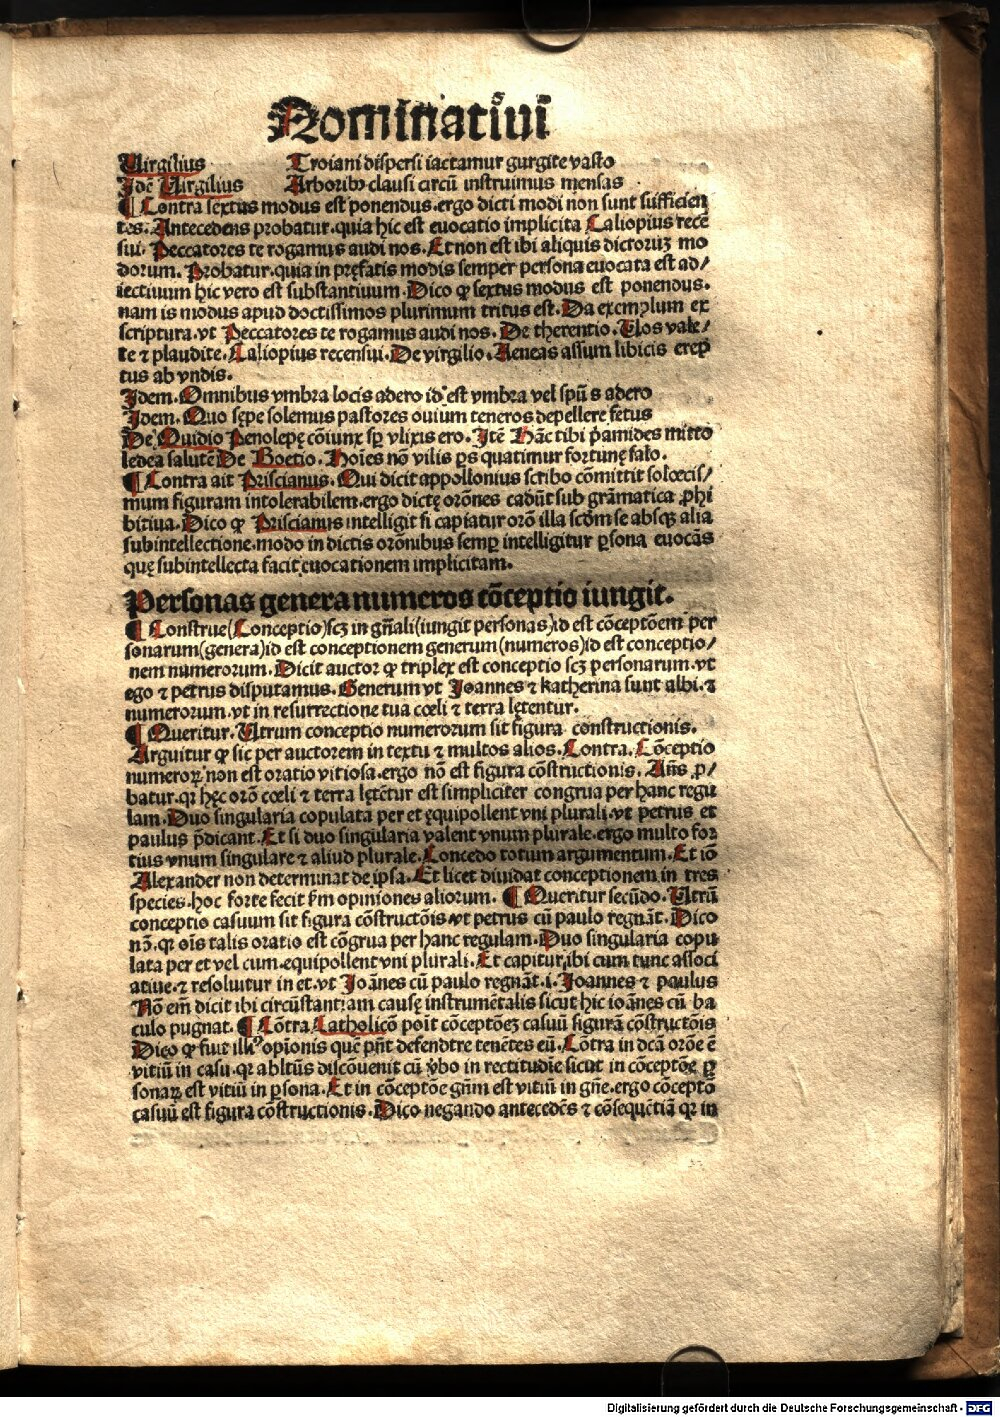 Nominatiui
Uirgilius Troiani dispersi iactamur gurgite vasto
Idē Uirgilius Arboribꝫ clausi circū instruimus mensas
¶ Contra sextus modus est ponendus.ergo dicti modi non sunt sufficien
tes. Antecedens probatur.quia hic est euocatio implicita Caliopius rece
sui. Peccatores te rogamus audi nos. Et non est ibi aliquis dictorum mo
dorum. Probatur.quia in pręfatis modis semper persona euocata est ad/
iectiuum hic vero est substantiuum. Dico ꝙ sextus modus est ponendus.
nam is modus apud doctissimos plurimum tritus est. Da exemplum ex
scriptura.vt Peccatores te rogamus audi nos. De therentio. Uos vale/
te ⁊ plaudite. Caliopius recensui. De virgilio. Aeneas assum libicis erep
tus ab vndis.
Idem. Omnibus vmbra locis adero id est vmbra vel spūs adero
Idem. Quo sępe solemus pastores ouium teneros depellere fetus
De Ouidio Penolepę cōiunx sp̄ vlixis ero. Itē Hāc tibi p̄amides mitto
ledea salutē De Boetio. Hoīes nō vilis ps quatimur fortunę salo.
¶ Contra ait Priscianus. Qui dicit appollonius scribo cōmittit solœcis/
mum figuram intolerabilem.ergo dictę orōnes cadūt sub grāmatica ꝓhi
bitiua. Dico ꝙ Priscianus intelligit si capiatur orō illa scdm se absqꝫ alia
subintellectione.modo in dictis orōnibus semꝑ intelligitur ꝑsona euocās
quę subintellecta facit euocationem implicitam.
Personas genera numeros cōceptio iungit.
¶ Construe(Conceptio)scꝫ in gn̄ali(iungit personas)id est cōceptōem per
sonarum(genera)id est conceptionem generum(numeros)id est conceptio/
nem numerorum. Dicit auctor ꝙ triplex est conceptio scꝫ personarum.vt
ego ⁊ petrus disputamus. Generum vt Joannes ⁊ katherina sunt albi.⁊
numerorum.vt in resurrectione tua cœli ⁊ terra lętentur.
¶ Queritur. Utrum conceptio numerorum sit figura constructionis.
Arguitur ꝙ sic per auctorem in textu ⁊ multos alios. Contra. Cōceptio
numeroꝝ non est oratio vitiosa.ergo nō est figura cōstructionis. Añs ꝓ/
batur.qꝛ hęc orō cœli ⁊ terra lętētur est simpliciter congrua per hanc regu
lam. Duo singularia copulata per et ęquipollent vni plurali.vt petrus et
paulus p̄dicant. Et si duo singularia valent vnum plurale.ergo multo for
tius vnum singulare ⁊ aliud plurale. Concedo totum argumentum. Et iō
Alexander non determinat de ipsa. Et licet diuidat conceptionem in tres
species.hoc forte fecit s̄m opiniones aliorum. ¶ Queritur secūdo. Utrū
conceptio casuum sit figura cōstructōis.vt petrus cū paulo regnāt. Dico
nō.qꝛ oīs talis oratio est cōgrua per hanc regulam. Duo singularia copu
lata per et vel cum.equipollent vni plurali. Et capitur ibi cum tunc associ
atiue.⁊ resoluitur in et.vt Joānes cū paulo regnāt.i. Joannes ⁊ paulus
Nō em̄ dicit ibi circūstantiam causę instrumētalis sicut hic ioānes cū ba
culo pugnat. ¶ Cōtra Catholicō poīt cōceptōeꝫ casuū figurā cōstructōis
Dico ꝙ fuit illiꝰ opīonis quē pn̄t defendere tenētes eū. Cōtra in dcā orōe ē
vitiū in casu.qꝛ abltūs discōuenit cū v̄bo in rectitudīe sicut in cōceptōe ꝑ
sonaꝝ est vitiū in ꝑsona. Et in cōceptōe gn̄m est vitiū in gn̄e.ergo cōceptō
casuū est figura cōstructionis. Dico negando antecedēs ⁊ cōsequētiā qꝛ in
Digitalisierung gefördert durch die Deutsche Forschungsgemeinschaft - DFG